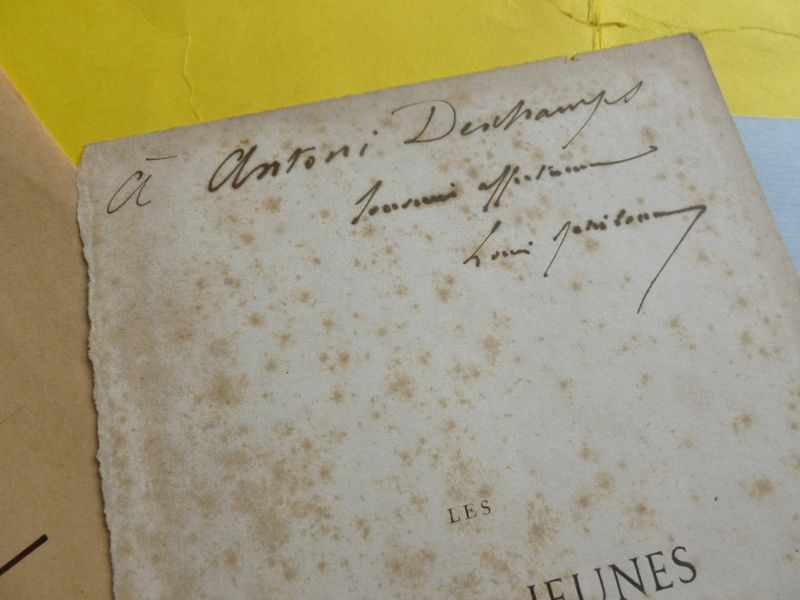 à Antoni Deschamps
souvenir affectueux
Louis
LES
JEUNES